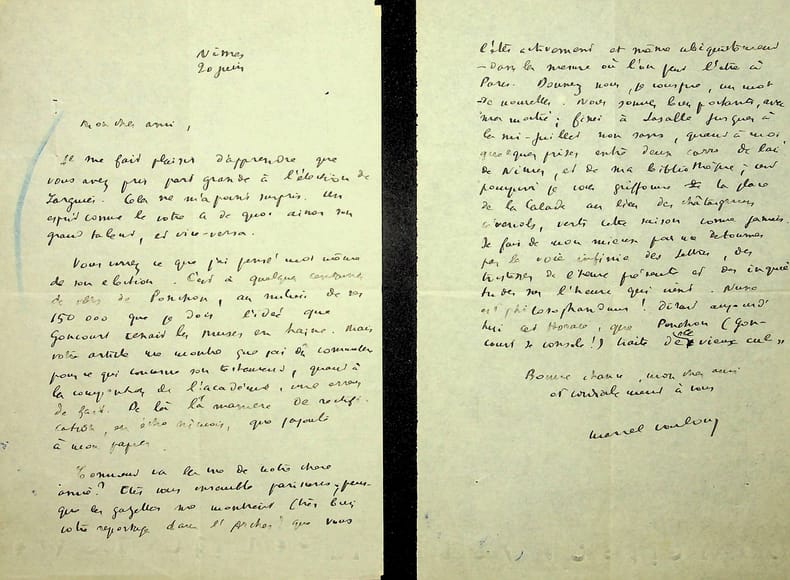 Nîmes
20 juin
Mon cher ami,
Il me fait plaisir d'apprendre que
vous avez pris part grande à l'élection de
Larguier. Cela ne m'a point surpris. Un
esprit comme le votre a de quoi aimer son
grand talent, et vice-versa.
Vous verrez ce que j'ai pensé moi même
de son election. C'est à quelque
de de Ponchon, au milieu de ses
150 000 que je dois l'idée que
Goncourt tenait les muses en haine. Mais
votre article me montre que j'ai dû commettre
pour ce qui concerne son testament, quant à
la composition de l'académie, une erreur
de fait. De là la manière de rectifi-
cation, que j'ajoute
à mon papier.
Comment va la vie de notre chère
amie? Etes vous ensemble parisiens, puis-
que les gazettes me montrent (très bien
votre reportage dans l'Archer) que vous
l'êtes activement et même ubiquitement
- dans la mesure où l'on peut l'être à
Paris. Donnez nous, je vous prie, un mot
de nouvelles. Nous sommes bien portants, avec
ma moitié; à Lasalle jusques à
la mi-juillet non sans, quant à moi
quelques prises entre deux cars de l'air
de Nîmes, et de ma bibliothèque; c'est
pourquoi je vous griffonne de la place
de la Calade au lieu des châtaigniers
cévenols, verts cette saison comme jamais.
Je fais de mon mieux par me détourner
par la voie infinie des lettres, des
tristesses de l'heure présente et des inquié
tudes sur l'heure qui vient. Nunc
est philosophandum! dirait aujourd'
hui cet Horace, que Ponchon (Gon-
court se console!) traite de "vieux cul"
Bonne chance, mon cher ami
et cordialement à vous
Marcel Coulon